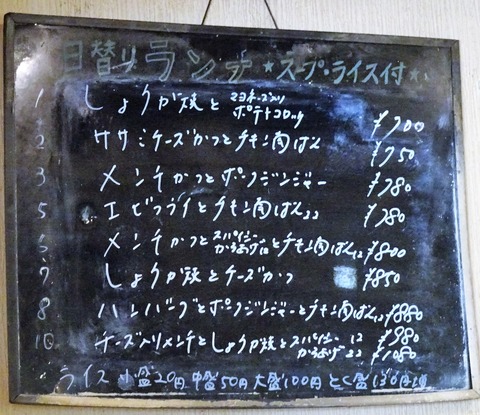 日替りランチ ★スープ・ライス付★
1 しょうが焼と マヨネーズ入り ポテトコロッケ ¥700
2 ササミチーズかつとチキン南ばん ¥750
3 メンチかつとポークジンジャー ¥780
5 エビフライとチキン南ばん22 ¥780
6 メンチかつとスパイシーからあげ10とチキン南ばん12 ¥800
7 しょうが焼とチーズかつ ¥850
8 ハンバーグとポークジンジャーとチキン南ばん12 ¥880
10 チーズ入りメンチとしょうが焼とスパイシーからあげ 12 ¥980
22 ¥1080
ライス 小盛20円 中盛50円 大盛100円 とく盛150円